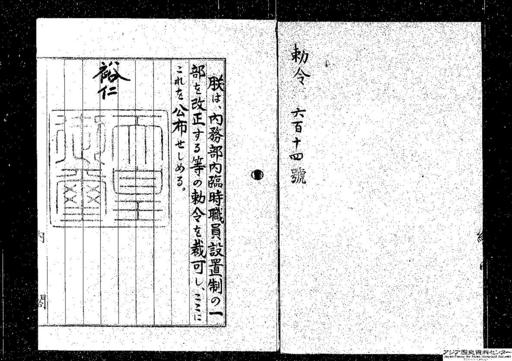 勅令 六百十四號
朕は、內務部內臨時職員設置制の一
部を改正する等の勅令を裁可し、ここに
これを公布せしめる。
裕仁
天皇
御璽
閣
アジア歴史資料センター